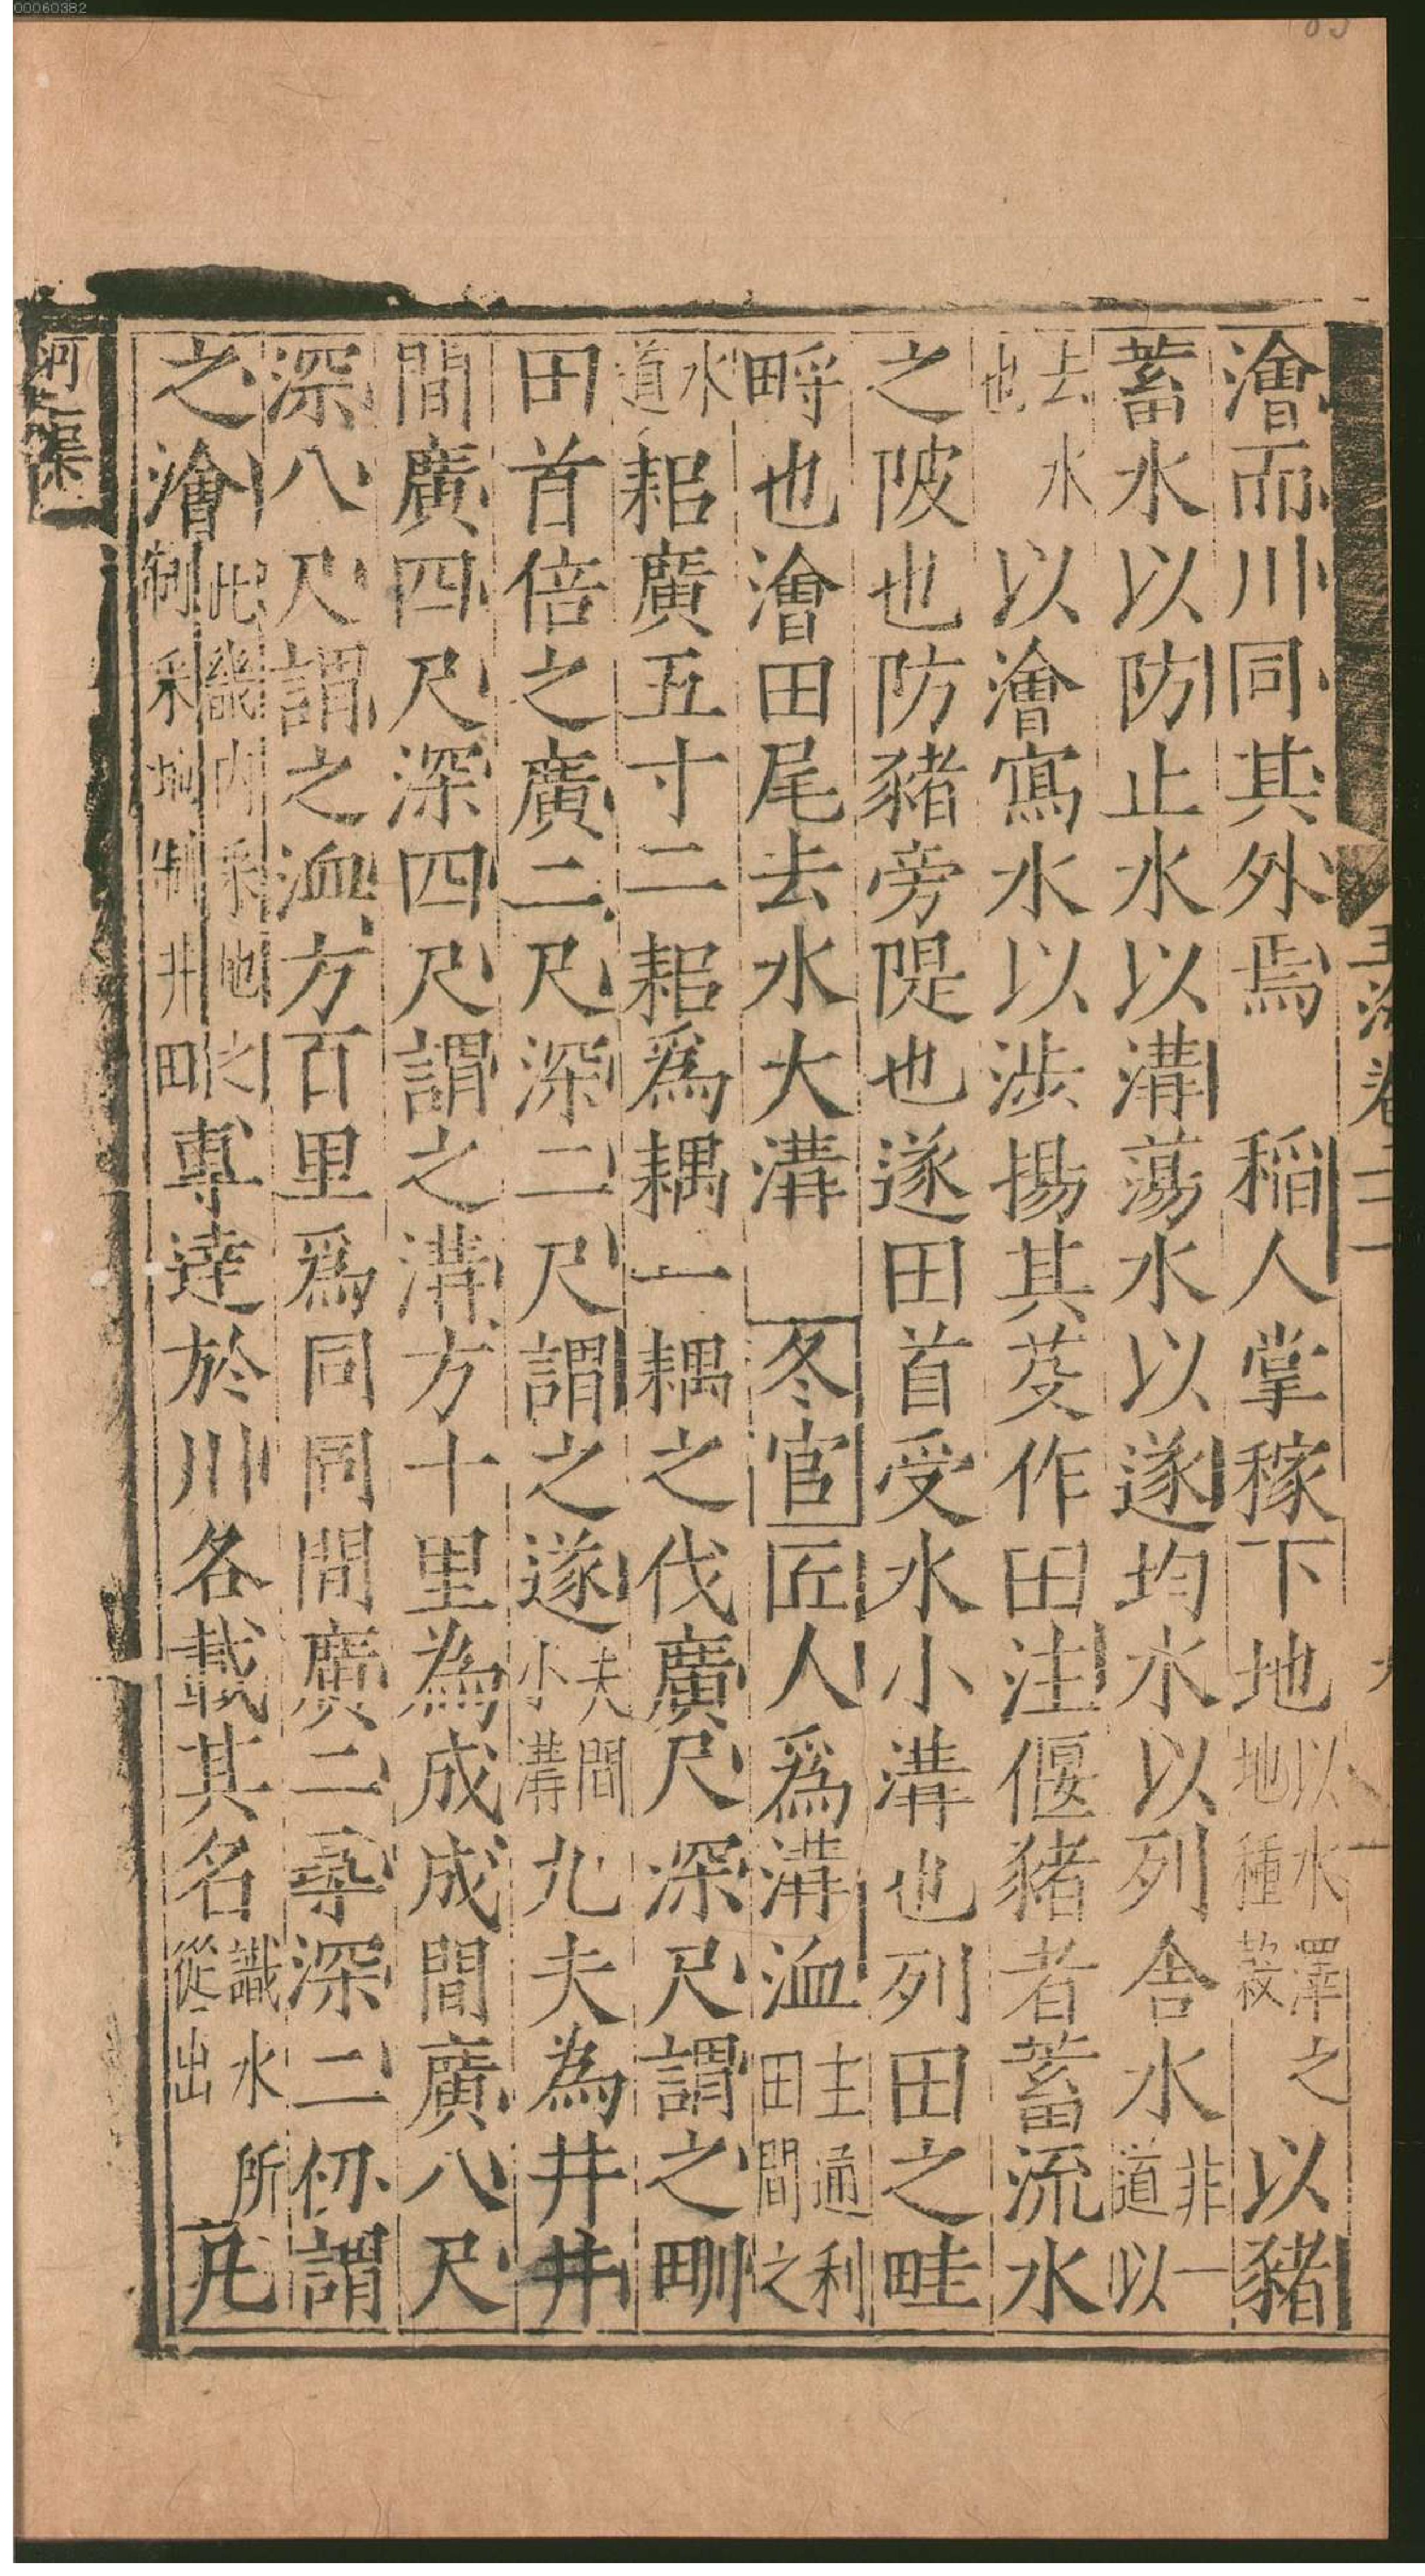 00060382
澮而川同其外焉　稻人掌稼下地以水澤之地種穀以豬
蓄水以防止水以溝蕩水以遂均水以列舍水非一道以
去水也以澮寫水以涉揚其芟作田注偃豬者蓄流水
之陂也防豬旁隄也遂田首受水小溝也列田之畦
畤也澮田尾去水大溝　冬官匠人爲溝洫主通利田間之
水道耜廣五寸二耜爲耦一耦之伐廣尺深尺謂之𤰕
田首倍之廣二尺深二尺謂之遂夫間小溝九夫為井井
間廣四尺深四尺謂之溝方十里為成成間廣八尺
深八尺謂之洫方百里爲同同間廣二尋深二仞謂
之澮此畿内采地之制采地制井田專達於川各載其名識水所從出凡
河渠